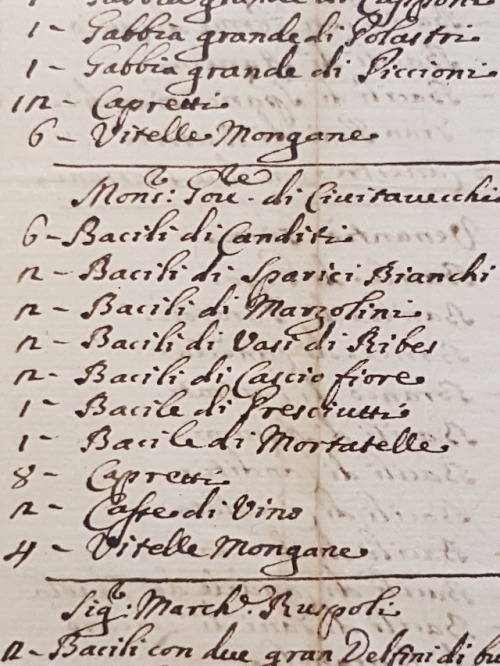 1 - Gabbia grande di Capponi
1 - Gabbia grande di Polastri
1 - Gabbia grande di Piccioni
12 - Capretti
6 - Vitelle Mongane
Mons:re Gou.re di Ciuitauecchi
6 - Bacili di Canditi
2 - Bacili di Sparici Bianchi
2 - Bacili di Marzolini
2 - Bacili di Vasi di Ribes
2 - Bacili di Cascio fiore
1 - Bacile di Presciutti
1 - Bacile di Mortatelle
8 - Capretti
2 - Casse di Vino
4 - Vitelle Mongane
Sig:r March.e Ruspoli
2 - Bacili con due gran Delfini di bu